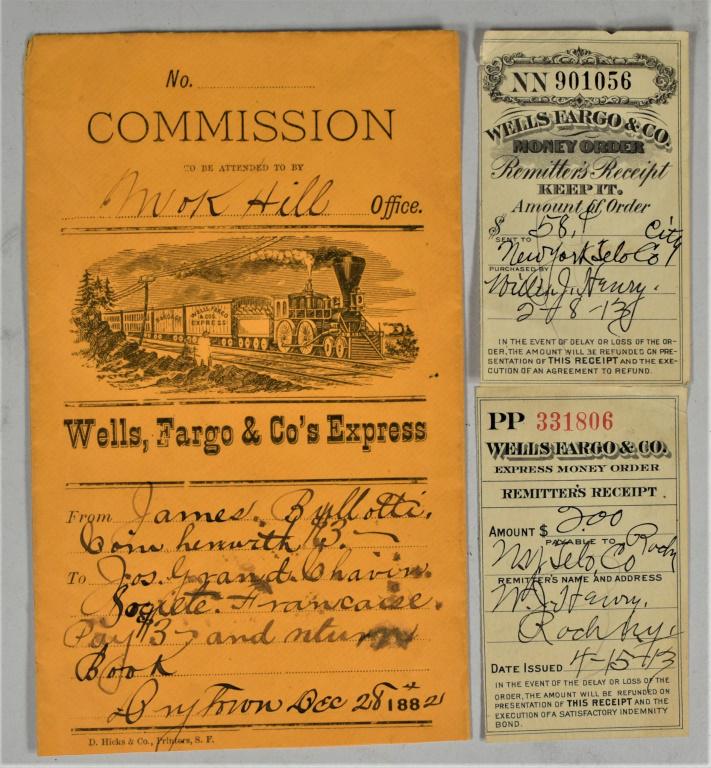 No.
COMMISSION
TO BE ATTENDED TO BY
Mok Hill Office.
BAGGAGE
WELLS, FARGO
& COS.
EXPRESS
Wells, Fargo & Co's Express
From James. Bullotti.
Coin herewith $3.—
To Jos. Grand. Chavin.
Société. Francaise.
Pay $3— and return
Book
Dry Town Dec 28 1882
D. Hicks & Co., Printers, S. F.
NN 901056
WELLS FARGO & CO.
MONEY ORDER
Remitter's Receipt
KEEP IT.
Amount of Order
$ 58.
SENT TO
New York Telo Co City
PURCHASED BY
J. Henry.
2-8-13
IN THE EVENT OF DELAY OR LOSS OF THE OR-
DER, THE AMOUNT WILL BE REFUNDED ON PRE-
SENTATION OF THIS RECEIPT AND THE EXE-
CUTION OF AN AGREEMENT TO REFUND.
PP 331806
WELLS FARGO & CO.
EXPRESS MONEY ORDER
REMITTER'S RECEIPT
AMOUNT $ 2.00
PAYABLE TO
NY Telo Co Roch
REMITTER'S NAME AND ADDRESS
W. J. Henry.
Roch NY.
DATE ISSUED 4-15-13
IN THE EVENT OF THE DELAY OR LOSS OF THE
ORDER, THE AMOUNT WILL BE REFUNDED ON
PRESENTATION OF THIS RECEIPT AND THE
EXECUTION OF A SATISFACTORY INDEMNITY
BOND.